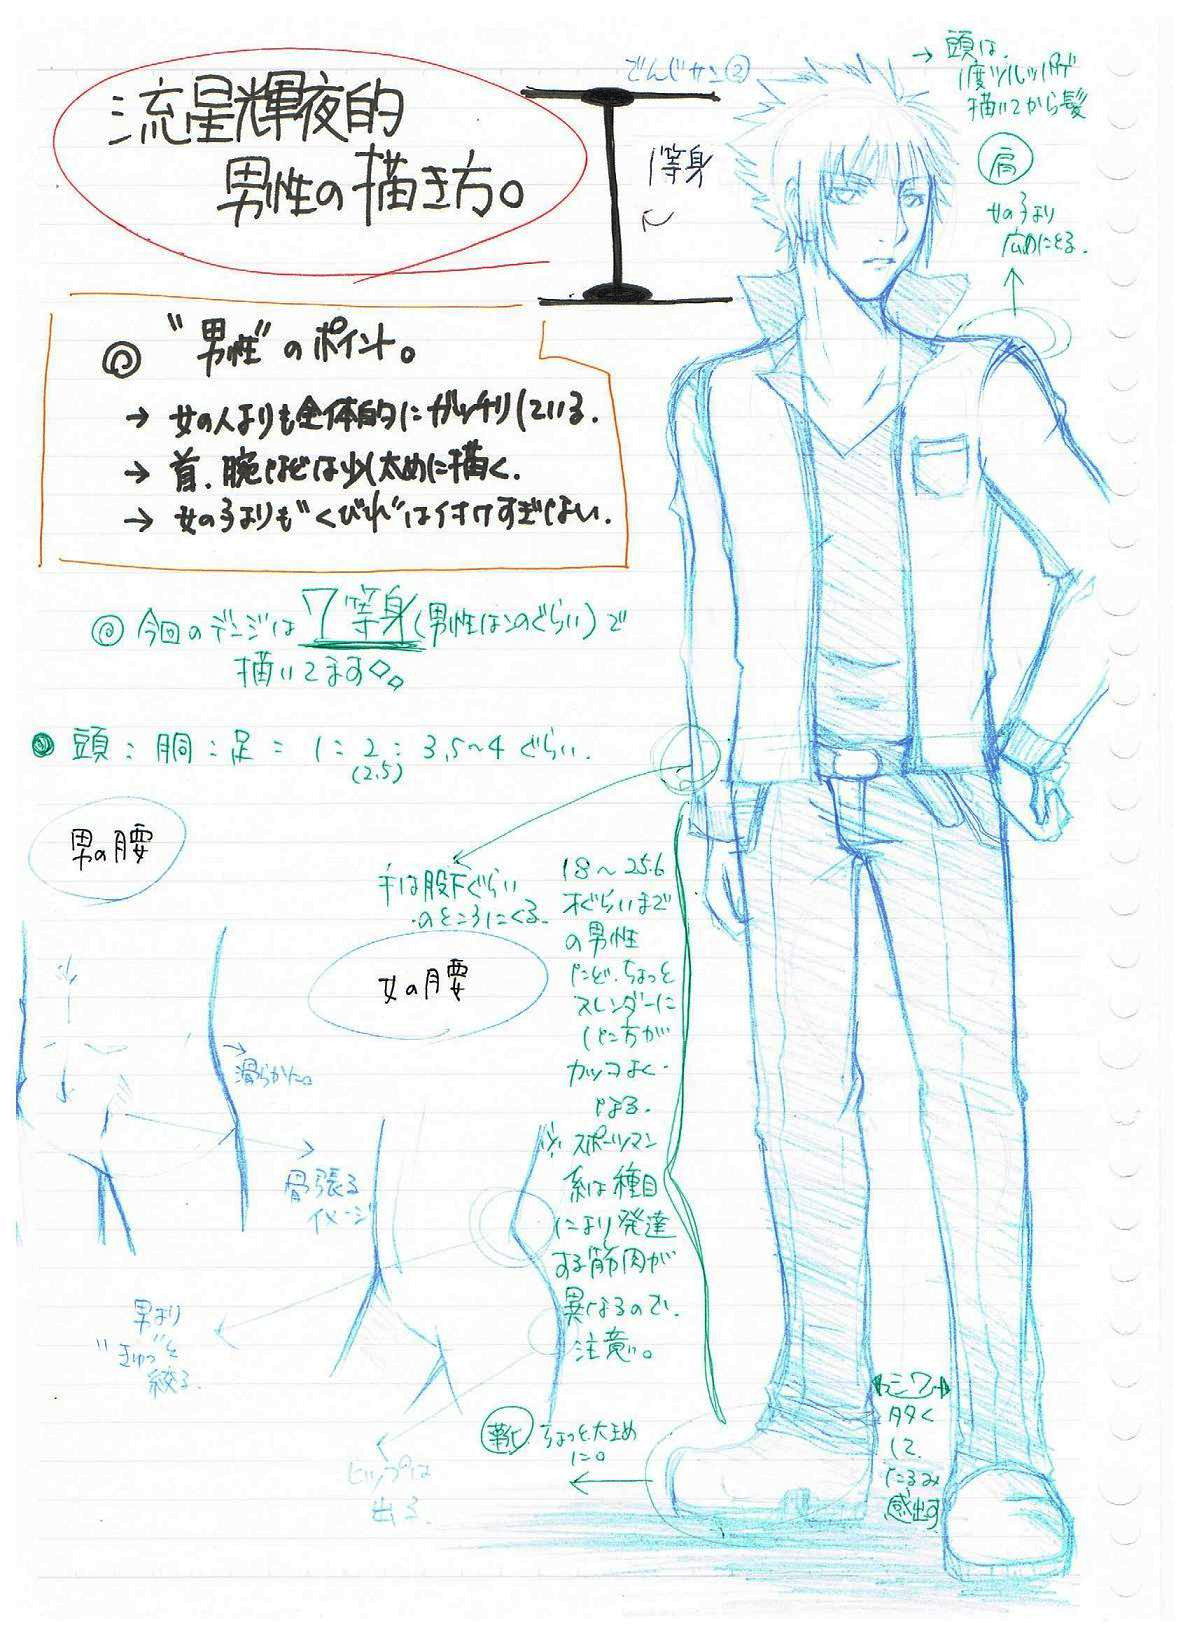 流星輝夜的
男性の描き方。
でんじサン②
1等身
→ 頭は、
1度ツルッパゲ
描いてから髪
肩
女の子より
広めにとる。
◎ "男性"のポイント。
→ 女の人よりも全体的にガッチリしている。
→ 首、腕などは少し太めに描く。
→ 女の子よりも"くびれ"はイオワすぎない。
◎ 今回のデンジは7等身(男性はこのぐらい)で
描いてます
● 頭:胴:足= 1:2:3.5～4ぐらい。
(2.5)
男の腰
手は股下ぐらい
のところにくる。
女の腰
滑らかに。
骨張る
イメージ
男より
"きゅっ"と
絞る。
ヒップは
出る。
18～25.6
才ぐらいまで
の男性
など、ちょっと
スレンダーに
した方が
カッコよく
なる。
※スポーツマン
系は種目
により発達
する筋肉が
異なるので、
注意。
靴 ちょっと大きめ
に。
シワ
多く
して、
たるみ
感出す